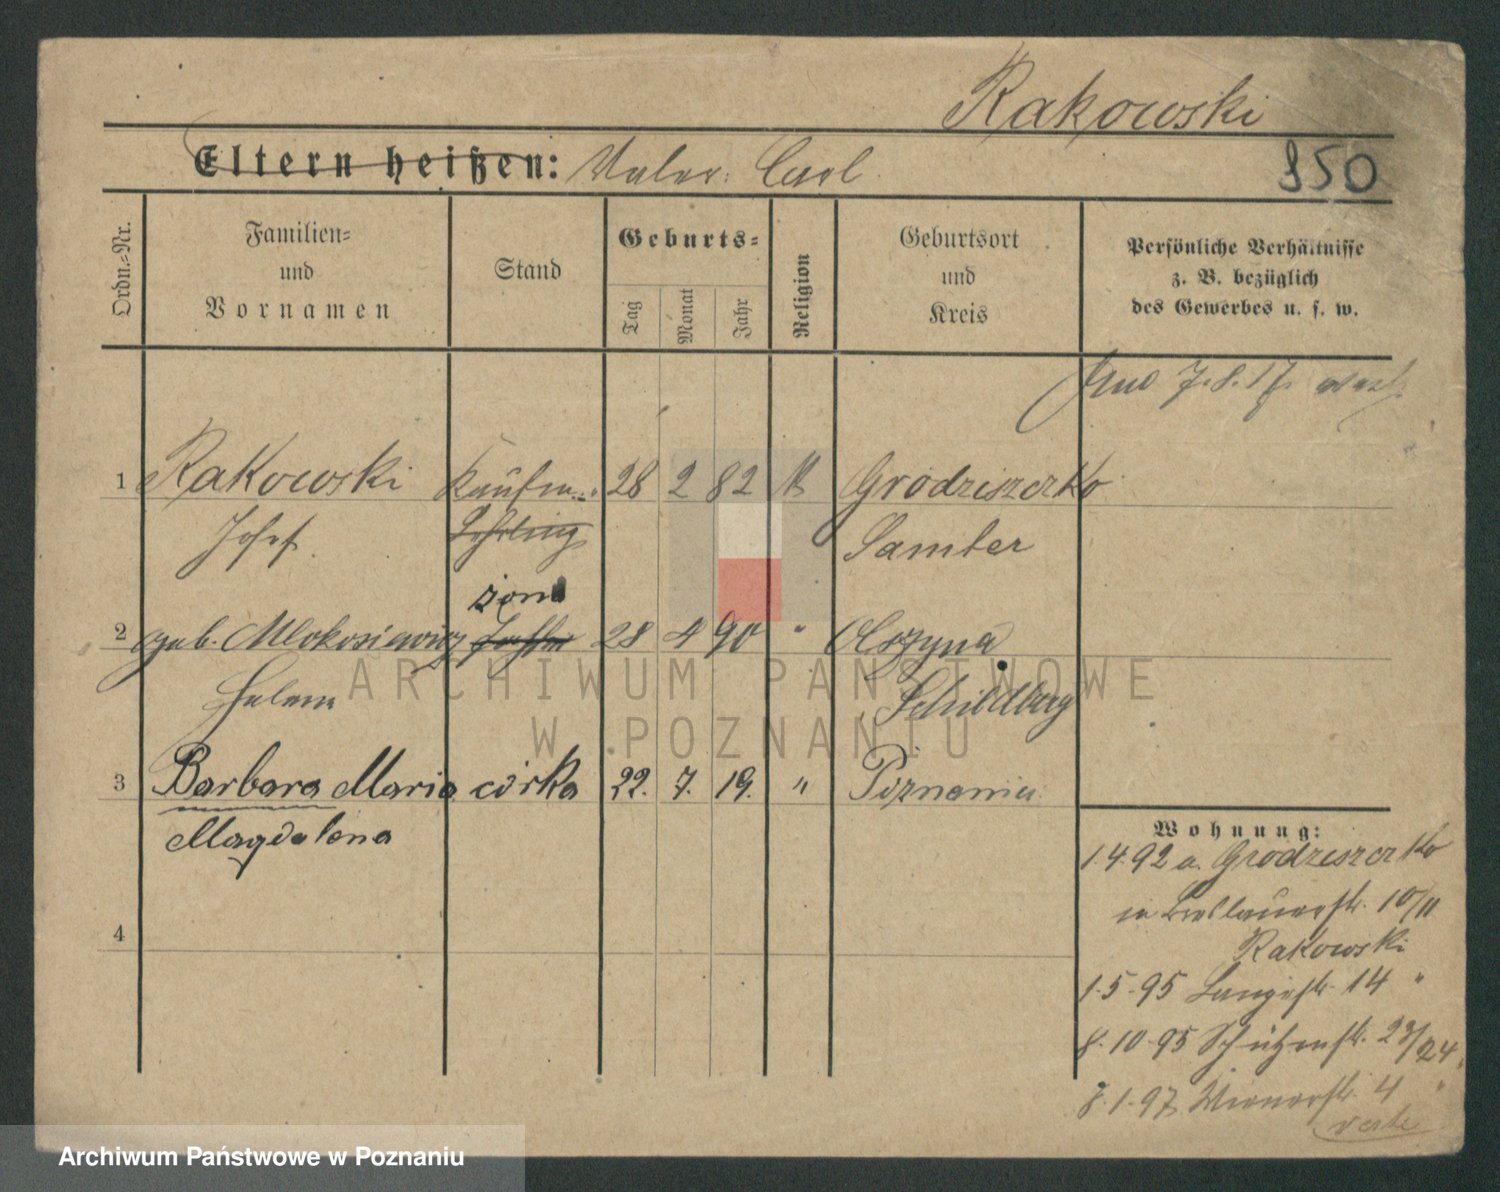 Rakowski
Eltern heißen: Vater: Carl
850
Ordn.-Nr.
Familien-
und
Vornamen
Stand
Geburts-
Tag
Monat
Jahr
Religion
Geburtsort
und
Kreis
Persönliche Verhältnisse
z. B. bezüglich
des Gewerbes u. s. w.
7.8.17
1 Rakowski Kaufm. 28 2 82 k Grodziszczko
Josef. Lehrling Samter
żona
2 geb. Mlokosiewicz Tochter 28 4 90 " Olszyna
Helena Schildberg
3 Barbara Maria córka 22. 7. 19. " Poznania
Magdalena
4
Wohnung:
1.4.92 a. Grodziszczko
in Breslauerstr. 10/11
Rakowski
1.5.95 Langestr. 14 "
8.10.95 Schützenstr. 23/24 "
8.1.97 Wienerstr. 4 "
verte
ARCHIWUM PAŃSTWOWE
W POZNANIU
Archiwum Państwowe w Poznaniu